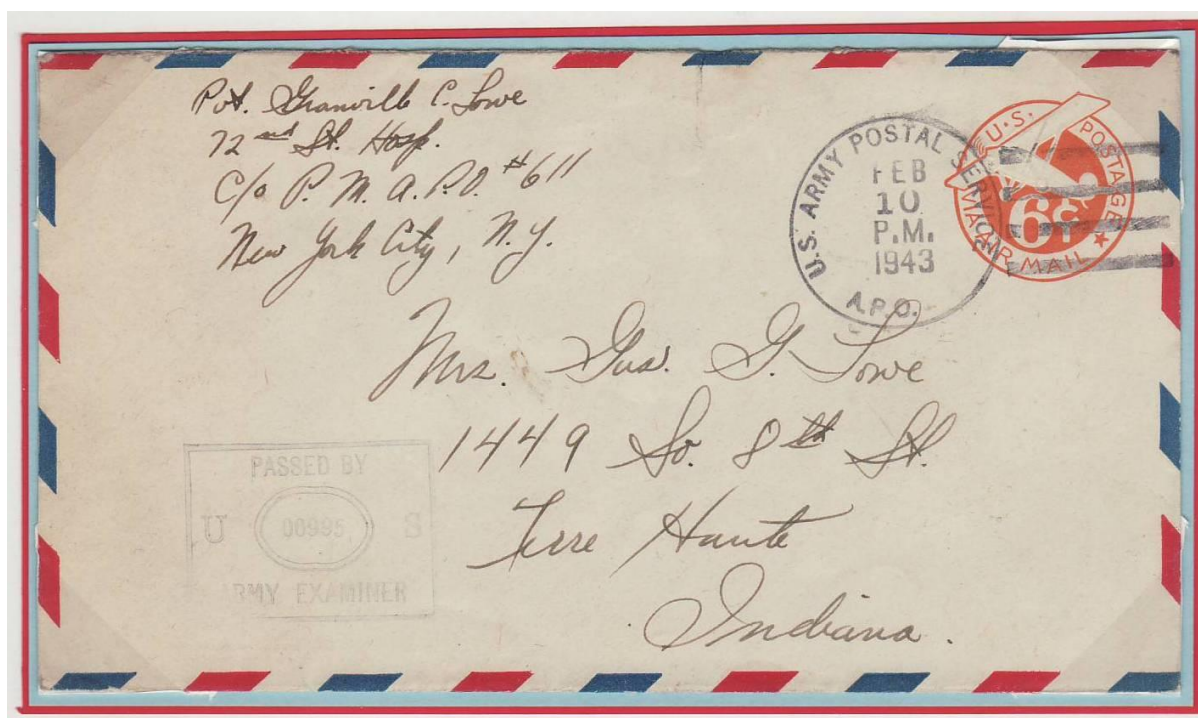 Pvt. Granvill C. Lowe
72nd St. Hosp.
C/o P. M. A.P.O. #611
New York City, N.Y.
U.S. ARMY POSTAL SERVICE
FEB
10
P.M.
1943
A.P.O.
U.S. POSTAGE
6¢
VIA AIR MAIL
Mrs. Gus. G. Lowe
1449 So. 8th St.
Terre Haute
Indiana.
PASSED BY
U 00995 S
ARMY EXAMINER